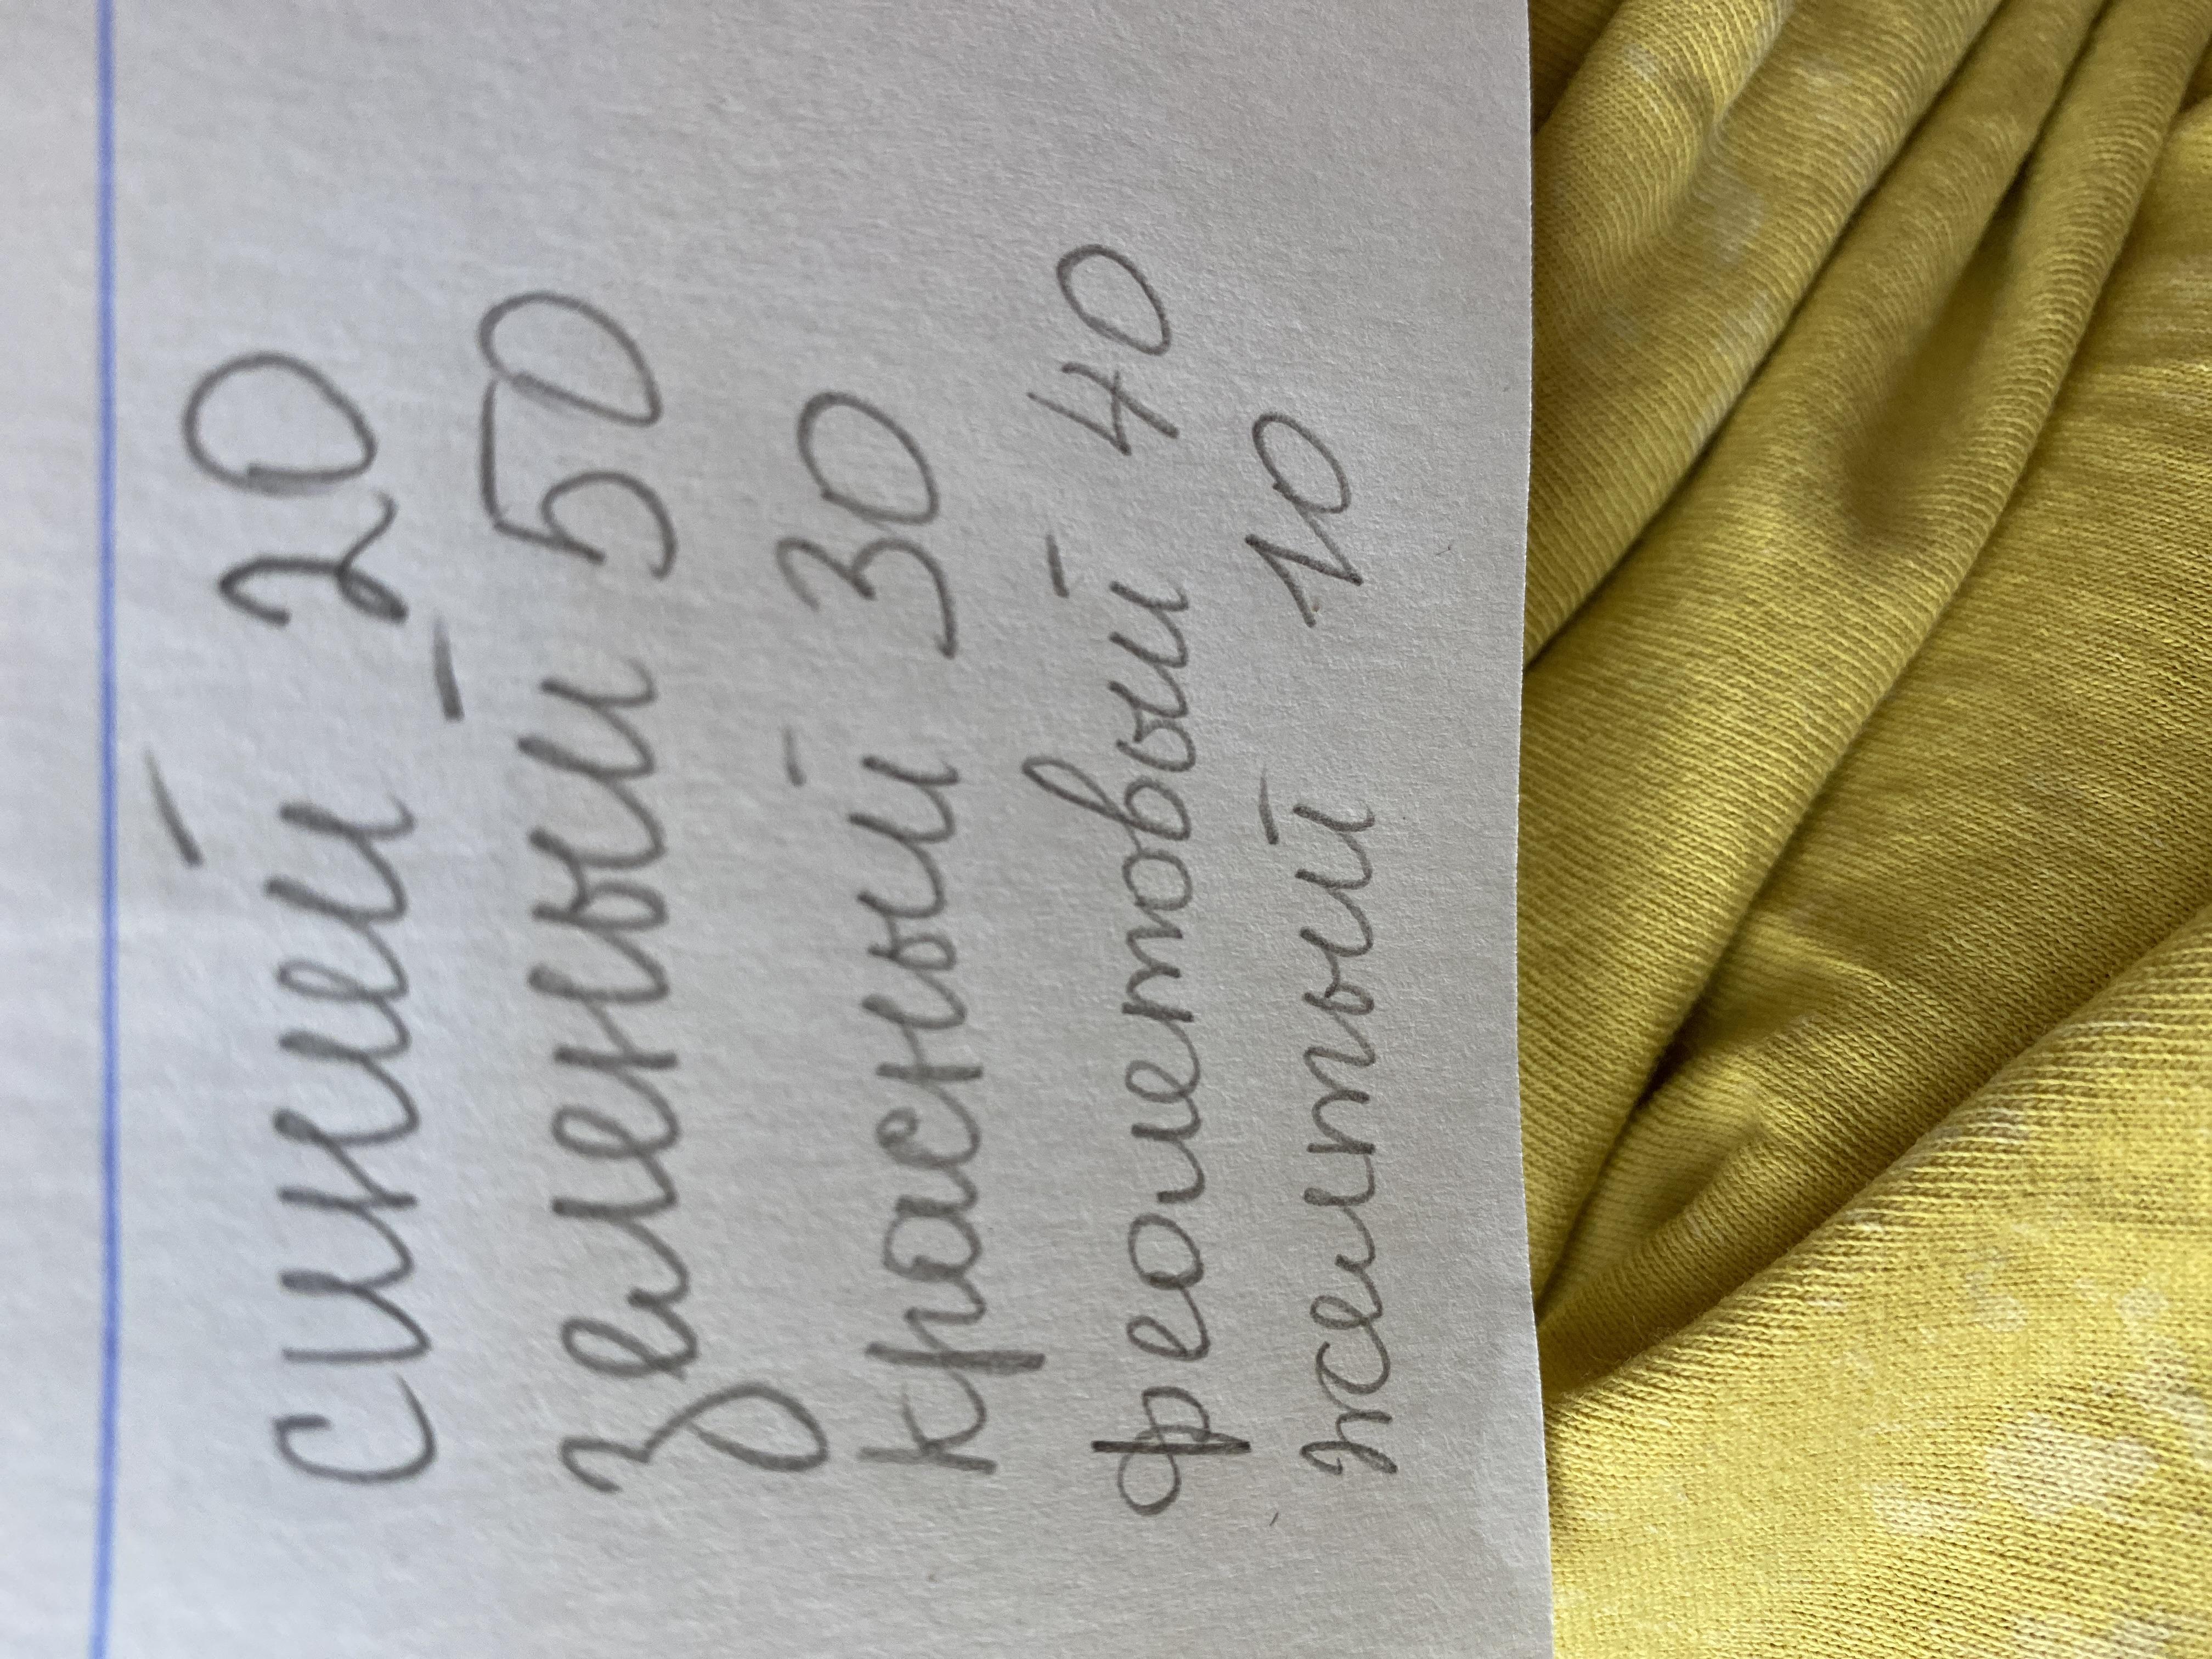 синий 20
зеленый 50
красный 30
феолетовый 40
желтый 10